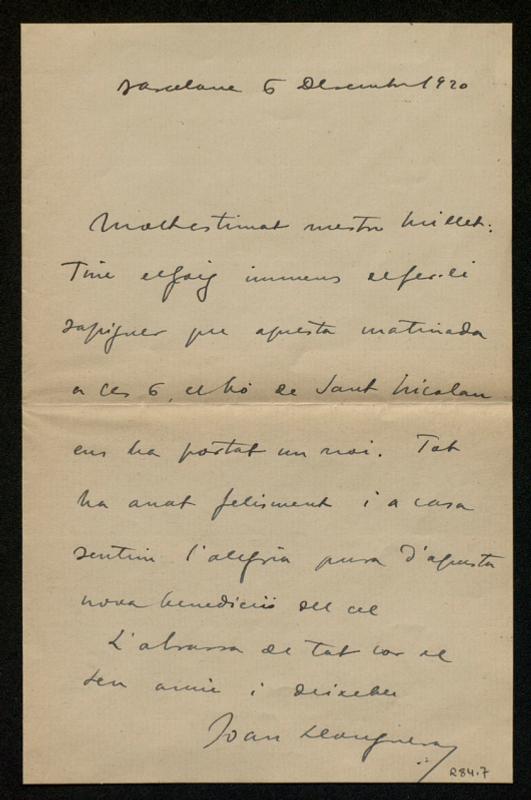 Barcelona 6 Desembre 1920
Molt estimat mestre Millet:
Tinc el goig immens de fer-li
sapiguer que aquesta matinada
a les 6, el bó de Sant Nicolau
ens ha portat un noi. Tot
ha anat felisment i a casa
sentim l'alegria pura d'aquesta
nova benedicció del cel
L'abrassa de tot cor el
seu amic i deixeble
Joan Llongueras
R84.7